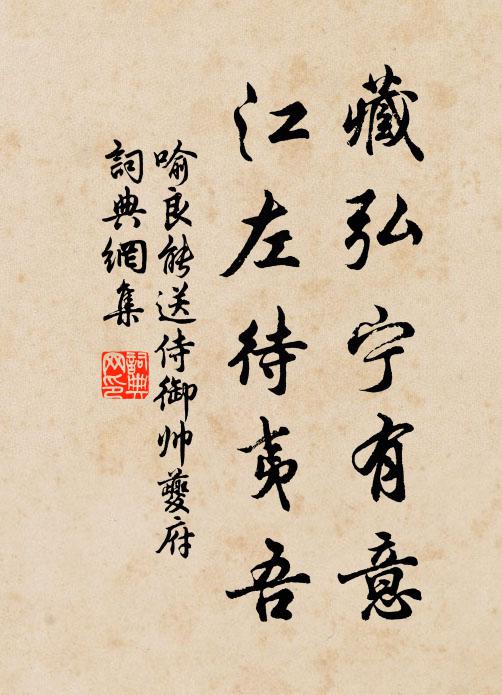 藏弘宁有意
江左待夷吾
喻良能送侍御帅夔府
詞典網集
詞典网印